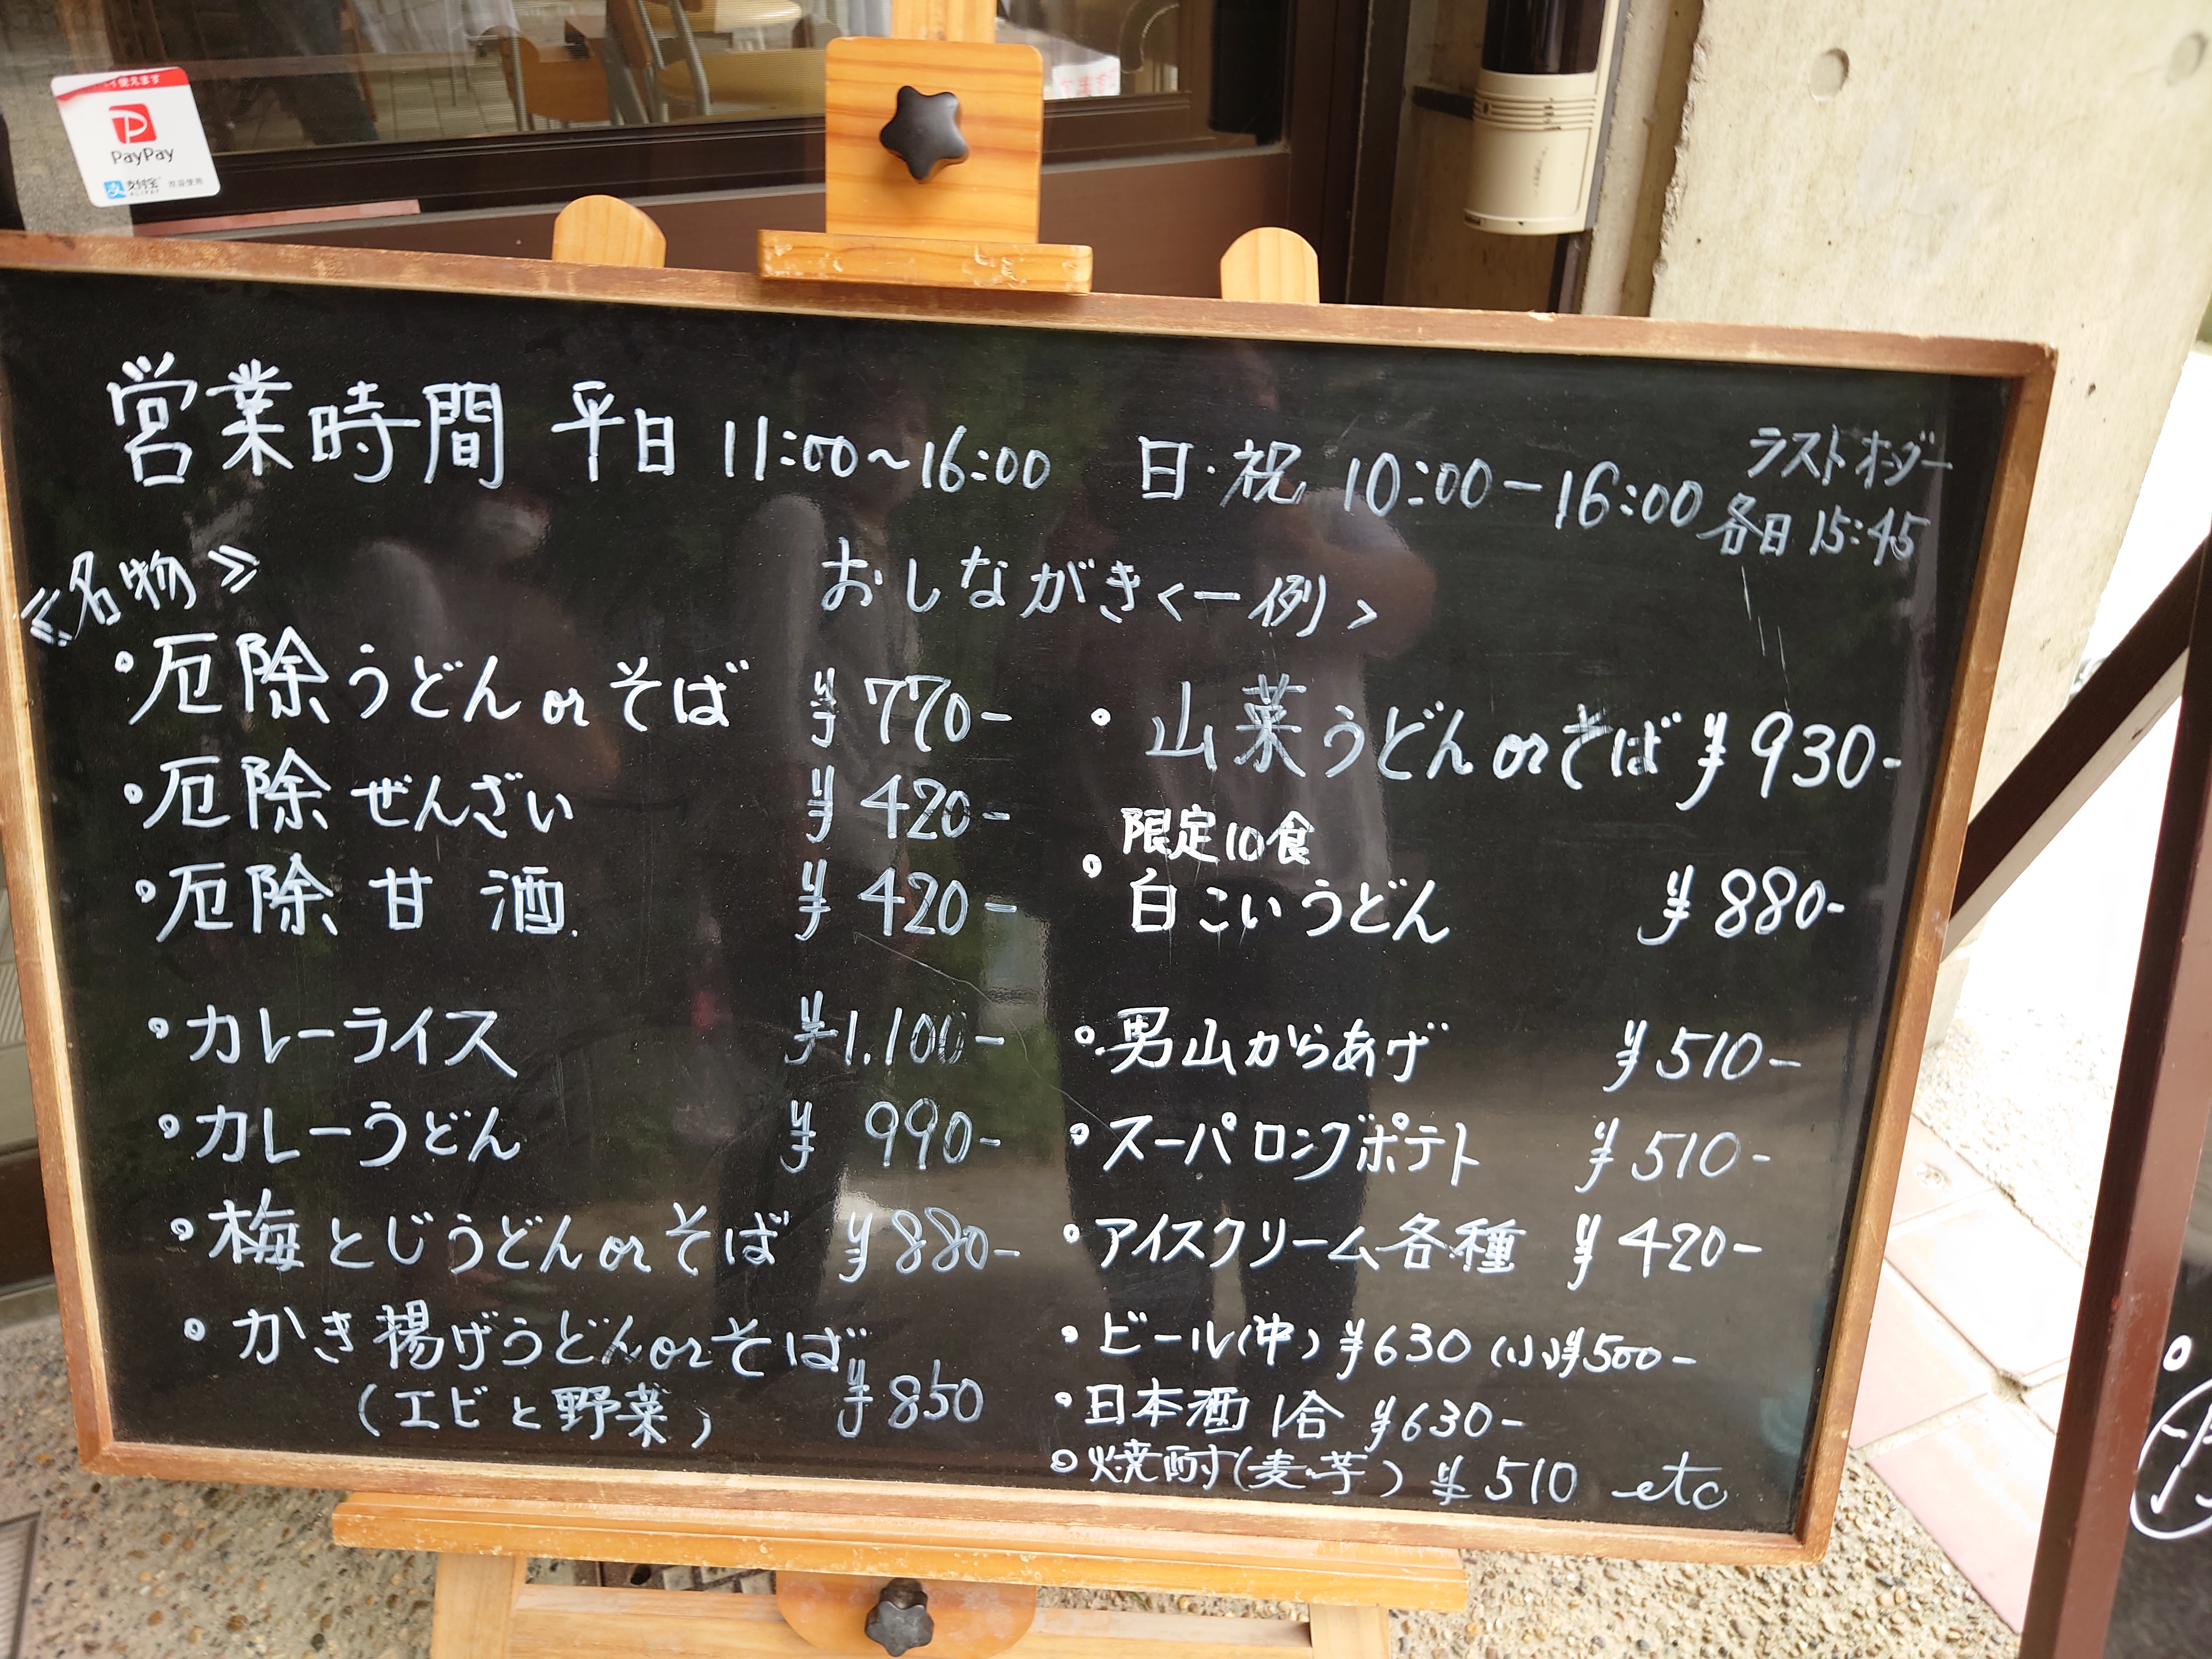 使えます
PayPay
支付宝
ALIPAY
営業時間 平日 11:00～16:00 日・祝 10:00－16:00
ラストオーダー
各日 15:45
≪名物≫
おしながき＜一例＞
・厄除うどんorそば ¥770-
・厄除ぜんざい ¥420-
・厄除甘酒 ¥420-
・カレーライス ¥1.100-
・カレーうどん ¥990-
・梅とじうどんorそば ¥880-
・かき揚げうどんorそば
(エビと野菜) ¥850
・山菜うどんorそば ¥930-
限定10食
・白こいうどん ¥880-
・男山からあげ ¥510-
・スーパロングポテト ¥510-
・アイスクリーム各種 ¥420-
・ビール(中) ¥630 (小)¥500-
・日本酒 1合 ¥630-
・焼酎(麦・芋) ¥510 etc